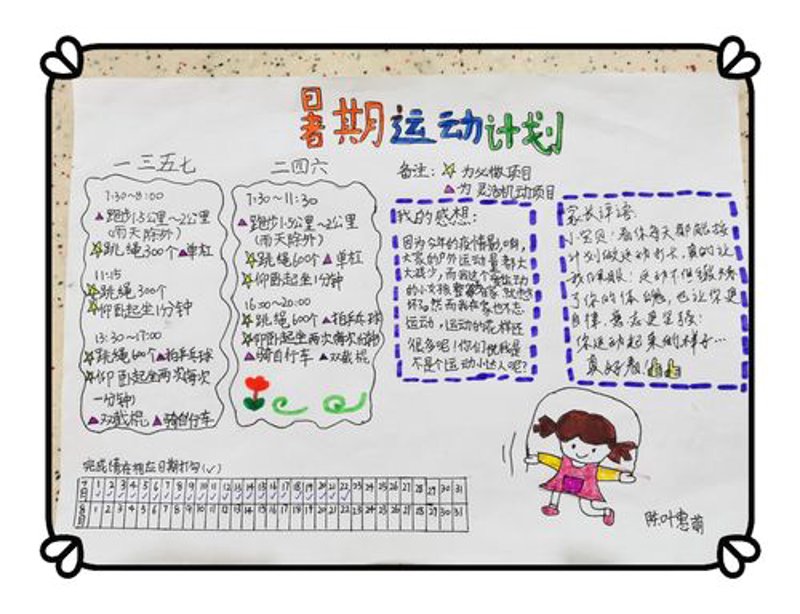 暑期运动计划
一三五七
7:30~8:00
跑步1.5公里~2公里
(雨天除外)
跳绳300个 单杠
11:15
跳绳300个
仰卧起坐1分钟
13:30~17:00
跳绳600个 拍乒乓球
仰卧起坐两次(每次
一分钟)
双截棍 骑自行车
二四六
7:30~11:30
跑步1.5公里~2公里
(雨天除外)
跳绳600个 单杠
仰卧起坐1分钟
16:00~20:00
跳绳600个 拍乒乓球
仰卧起坐两次每次1分钟
骑自行车 双截棍
备注: 为必做项目
为灵活机动项目
我的感想:
因为今年的疫情影响,
大家的户外运动量都大
大减少,而我这个爱运动
的小女孩整天在家
坏了。然而我在家也不忘
运动,运动的花样还
很多呢!你们说我是
不是个运动小达人呢?
家长评语:
小宝贝:看你每天都能按
计划做运动打卡,真的让
我佩服!运动不但锻炼
了你的体魄,也让你更
自律,意志更坚强!
你运动起来的样子…
真好看!
完成请在相应日期打勾(✓)
7月 1 2 3 4 5 6 7 8 9 10 11 12 13 14 15 16 17 18 19 20 21 22 23 24 25 26 27 28 29 30 31
8月 1 2 3 4 5 6 7 8 9 10 11 12 13 14 15 16 17 18 19 20 21 22 23 24 25 26 27 28 29 30 31
陈叶惠萌